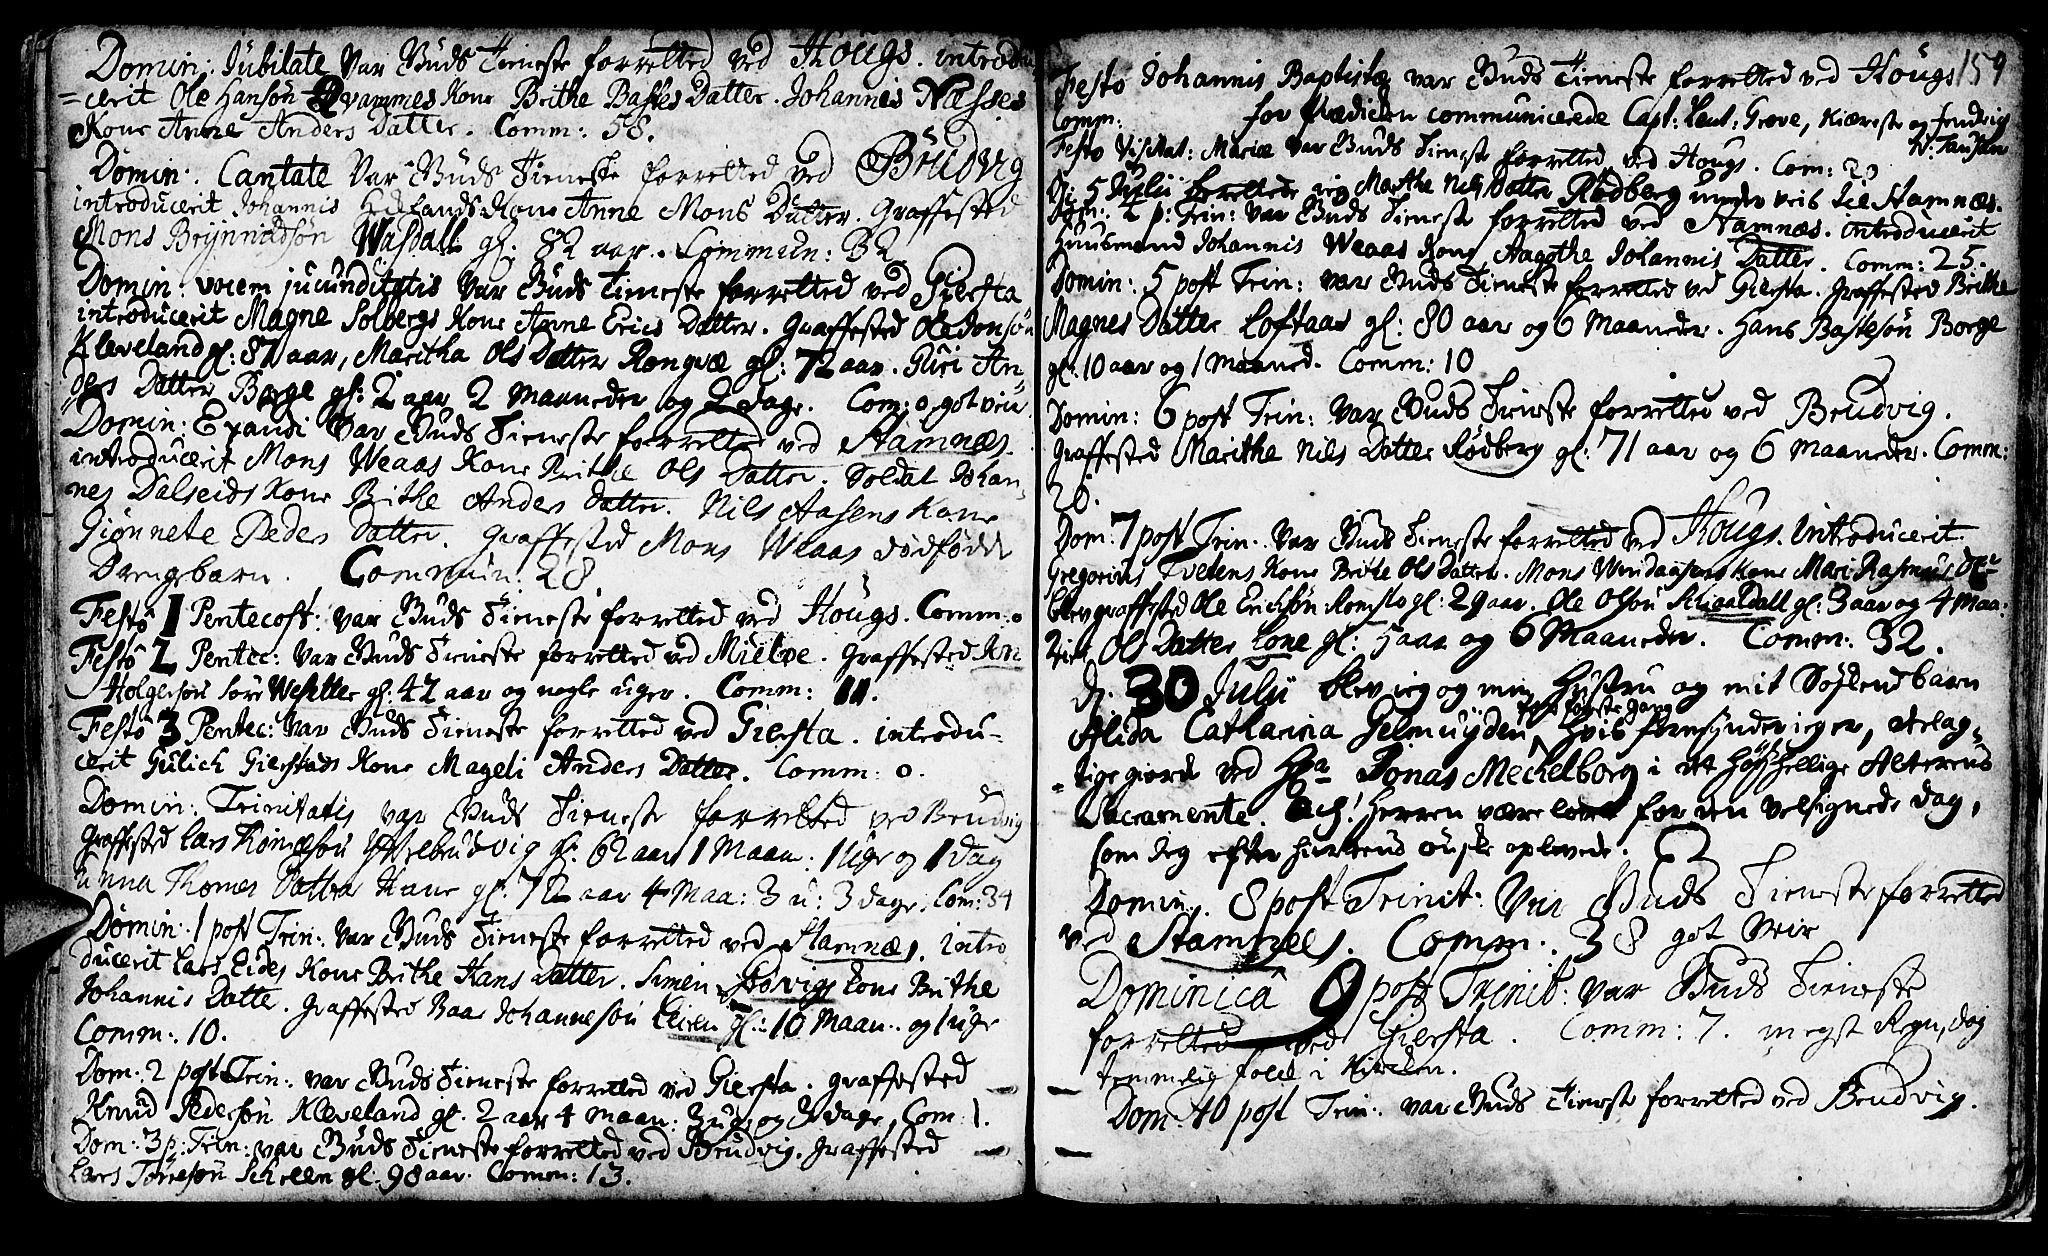 Domin: Jubilate var Guds Tieneste forretted ved Hougs. introdu
=cerit Ole Hansøn Qvammes Kone Brithe Bastes Datter. Johannes Næsses
Kone Anne Anders Datter. Comm: 58.
Domin: Cantate var Guds Tieneste forretted ved Brudvig
introducerit Johannis Helands Kone Anne Mons Datter. Graffested
Mons Brynnildsøn Wasdall gl: 82 aar. Commun: 32
Domin: vocem jucunditatis var Guds Tieneste forretted ved Giersta
introducerit Magne Solbergs Kone Anne Erics Datter. Graffested Ole Jonsøn
Kleveland gl: 87 aar, Maritha Ols Datter Rongvæ gl: 72 aar. Guri An
ders Datter Borge gl: 2 aar 2 Maaneder og 2 dage. Com: 0 got veir
Domin: Exaudi var Guds Tieneste forretted ved Stamnæs.
introducerit Mons Weaas Kone Brithe Ols Datter. Soldat Johan
nes Dalseids Kone Brithe Anders Datter. Nils Aasens Kone
Giønnete Peders Datter. Graffested Mons Weaas dødfødde
Drengebarn. Commun: 28
Festo 1 Pentecost: var Guds Tieneste forretted ved Hougs. Comm: 0
Festo 2 Pentec: var Guds Tieneste forretted ved Mielde. Graffested
Holgersøn Sore Wesetter gl: 47 aar og nogle uger. Comm: 11.
Festo 3 Pentec: var Guds Tieneste forretted ved Giersta. introdu-
cerit Gulich Gierstads Kone Mageli Anders Datter. Comm: 0.
Domin: Trinitatis var Guds Tieneste forretted ved Brudvig
Graffested Lars gl: 62 aar 1 Maan: 1 Uge og 1 Dag
Anna Thomes Datter Hane gl: 72 aar 4 Maa: 3 u: 3 dage. Com: 34
Domin: 1 post Trin: var Guds Tieneste forretted ved Stamnæs. intro
ducerit Lars Eides Kone Brithe Hans Datter. Simen Støvigs Kone Brithe
Johannis Datte. Graffested Baar Johannesøn gl: 10 Maan: og 1 uge
Comm: 10.
Dom: 2 post Trin: var Guds Tieneste forretted ved Giersta. Graffested
Knud Pedersøn Kleveland gl: 2 aar 4 maan: 3 ug: og dage, Com: 1.
Dom: 3 p: Trin: var Guds Tieneste forretted ved Brudvig. Graffested
Lars Tøresøn gl: 98 aar. Comm: 13.
159
Festo Johannis Baptistæ var Guds Tieneste forretted ved Hougs
Comm: for Prædiken communicerede Capt: Leut: Grove, Kiæreste og fendrig
Festo Visitat: Mariæ var Guds Tieneste forretted ved Hougs. Com: 20
D: 5 Julii berettede ieg Marthe Nils Datter Rødberg under veis til Stamnæs.
Dom: p: Trin: var Guds Tieneste forretted ved Stamnæs. introducerit
Huusmand Johannis Weaas Kone Aagothe Johannis Datter. Comm: 25.
Domin: 5 post Trin: var Guds Tieneste forretted ved Giersta. Graffested Brithe
Magnes Datter Loftaas gl: 80 aar og 6 Maaneder. Hans Bastesøn Borge
gl: 10 aar og 1 Maaned. Comm: 10
Domin: 6 post Trin: var Guds Tieneste forretted ved Brudvig.
Graffested Marithe Nils Datter Rødberg gl: 71 aar og 6 Maaneder. Comm:
Dom: 7 post Trin: var Guds Tieneste forretted ved Hougs. Introducerit
Gregorius Tvetens Kone Brithe Ols Datter. Mons Kone Mari Rasmus
blev graffested Ole Erichsøn Romslo gl: 29 aar. Ole Olsøn gl: 3 aar og 4 Maa:
Ols Datter Lone gl: aar og 6 Maaneder. Comm: 32.
D: 30 Julii blev ieg og min Hustru og mit Søskendbarn
Alida Catharina Gelmuyden første gang hvis formynder ieger, delag-
-tige giorde ved Hr. Jonas Mechelborg i det Høyhellige Alterens
Sacramente. Ach! Herren være lovet for den velsignede dag,
som ieg efter hiertens ønske oplevede.
Domin: 8 post Trinit: var Guds Tieneste forretted
ved Stamnees. Comm: 38 got veir
Dominica 9 post Trinit: var Guds Tieneste
forretted ved Giersta. Comm: 7. megst Regn, dog
temmelig folck i Kircken.
Dom: 10 post Trin: var Guds Tieneste forretted ved Brudvig.